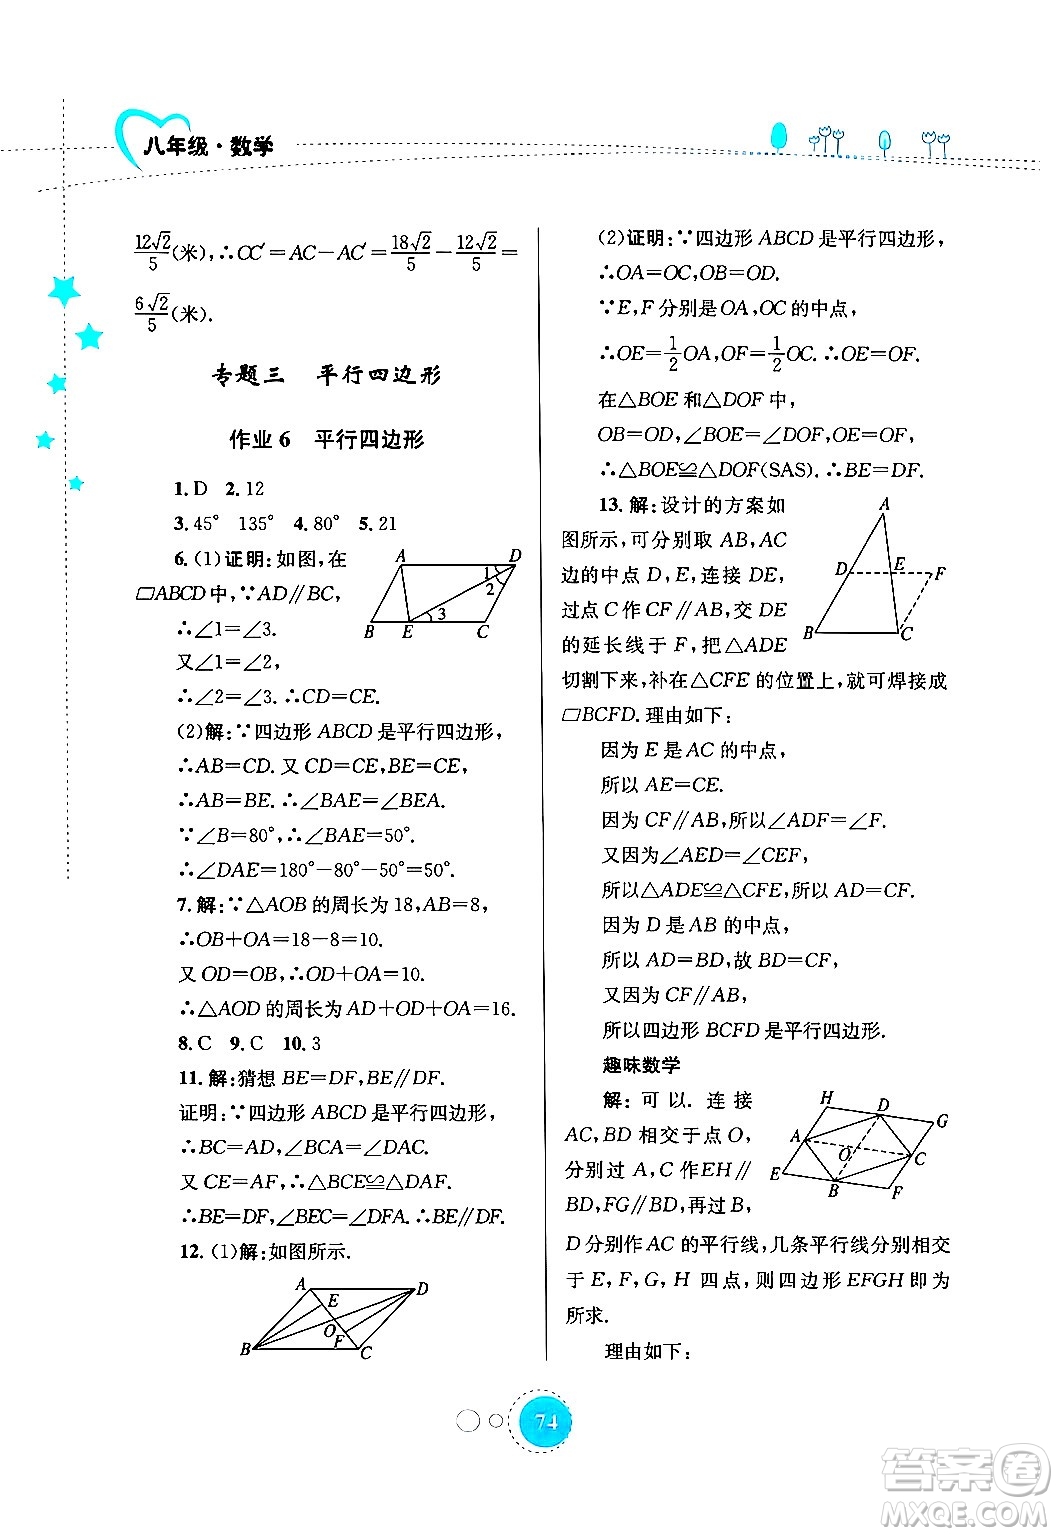 八年级·数学
12√2/5(米),∴CC′=AC-AC′=18√2/5-12√2/5=
6√2/5(米).
专题三 平行四边形
作业6 平行四边形
1.D 2.12
3.45° 135° 4.80° 5.21
6.(1)证明:如图,在
▱ABCD中,∵AD∥BC,
∴∠1=∠3.
又∠1=∠2,
∴∠2=∠3.∴CD=CE.
A D 1 2 3 B E C
(2)解:∵四边形ABCD是平行四边形,
∴AB=CD.又CD=CE,BE=CE,
∴AB=BE.∴∠BAE=∠BEA.
∵∠B=80°,∴∠BAE=50°.
∴∠DAE=180°-80°-50°=50°
7.解:∵△AOB的周长为18,AB=8,
∴OB+OA=18-8=10.
又OD=OB,∴OD+OA=10.
∴△AOD的周长为AD+OD+OA=16.
8.C 9.C 10.3
11.解:猜想BE=DF,BE∥DF.
证明:∵四边形ABCD是平行四边形,
∴BC=AD,∠BCA=∠DAC.
又CE=AF,∴△BCE≌△DAF.
∴BE=DF,∠BEC=∠DFA.∴BE∥DF.
12.(1)解:如图所示.
A D E O F B C
(2)证明:∵四边形ABCD是平行四边形,
∴OA=OC,OB=OD.
∵E,F分别是OA,OC的中点,
∴OE=1/2OA,OF=1/2OC.∴OE=OF.
在△BOE和△DOF中,
OB=OD,∠BOE=∠DOF,OE=OF,
∴△BOE≌△DOF(SAS).∴BE=DF.
13.解:设计的方案如
图所示,可分别取AB,AC
边的中点D,E,连接DE,
过点C作CF∥AB,交DE
的延长线于F,把△ADE
切割下来,补在△CFE的位置上,就可焊接成
▱BCFD.理由如下:
A D E F B C
因为E是AC的中点,
所以AE=CE.
因为CF∥AB,所以∠ADF=∠F.
又因为∠AED=∠CEF,
所以△ADE≌△CFE,所以AD=CF.
因为D是AB的中点,
所以AD=BD,故BD=CF,
又因为CF∥AB,
所以四边形BCFD是平行四边形.
趣味数学
解:可以.连接
AC,BD相交于点O,
分别过A,C作EH∥
BD,FG∥BD,再过B,
D分别作AC的平行线,几条平行线分别相交
于E,F,G,H四点,则四边形EFGH即为
所求.
H D G A O C E B F
理由如下:
74
答案圈
MXQE.COM